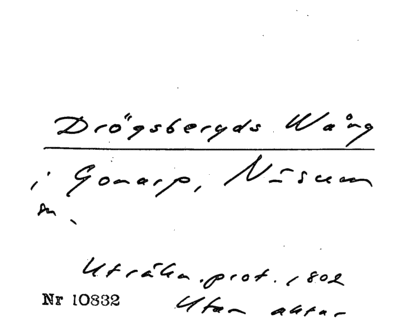 Drögsberyds Wång
i Gonarp, Näsum
sn.
Uträkn. prot. 1802
Nr 10832
Utan aktnr